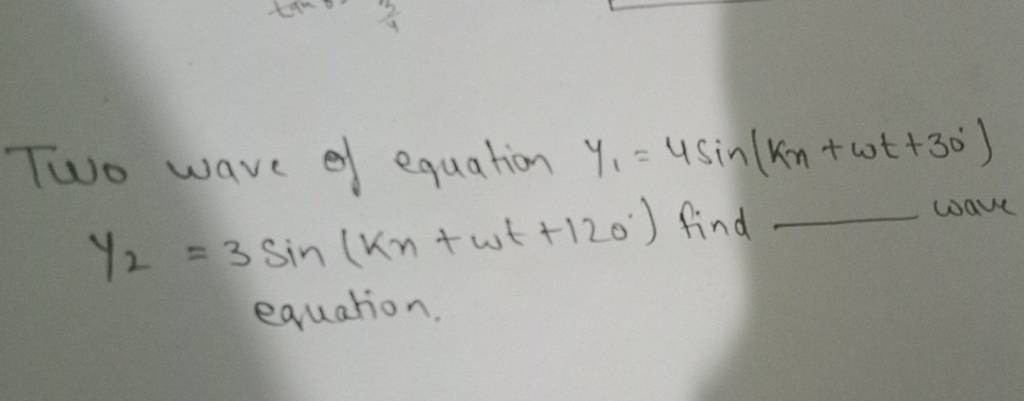 tan 3/4
Two wave of equation y₁ = 4 sin(Kx + wt + 30°)
y₂ = 3 sin (Kx + wt + 120°) find ______ wave
equation.